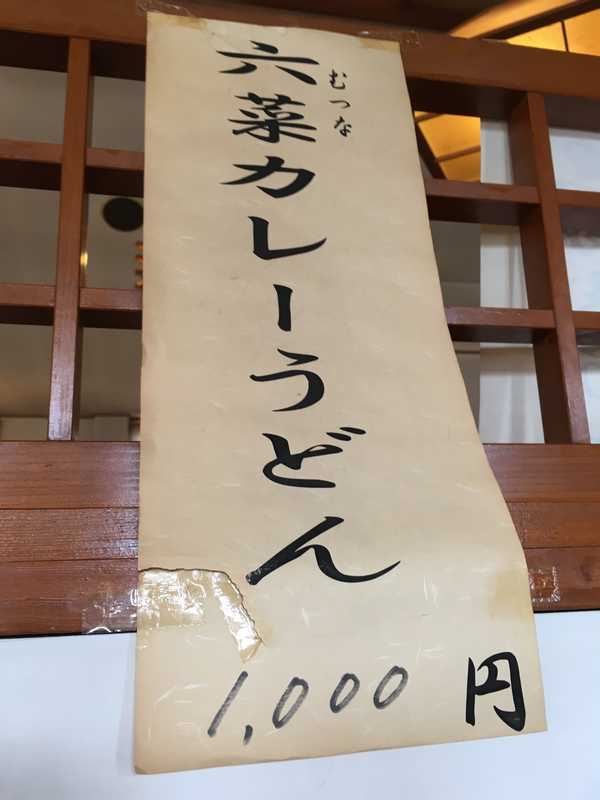 六菜カレーうどん
むつな
1,000円